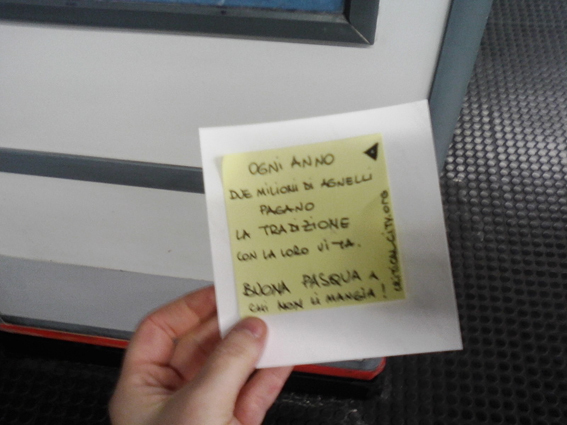 OGNI ANNO
DUE MILIONI DI AGNELLI
PAGANO
LA TRADIZIONE
CON LA LORO VITA.
BUONA PASQUA A
CHI NON LI MANGIA!
CRITICAL-CITY.ORG